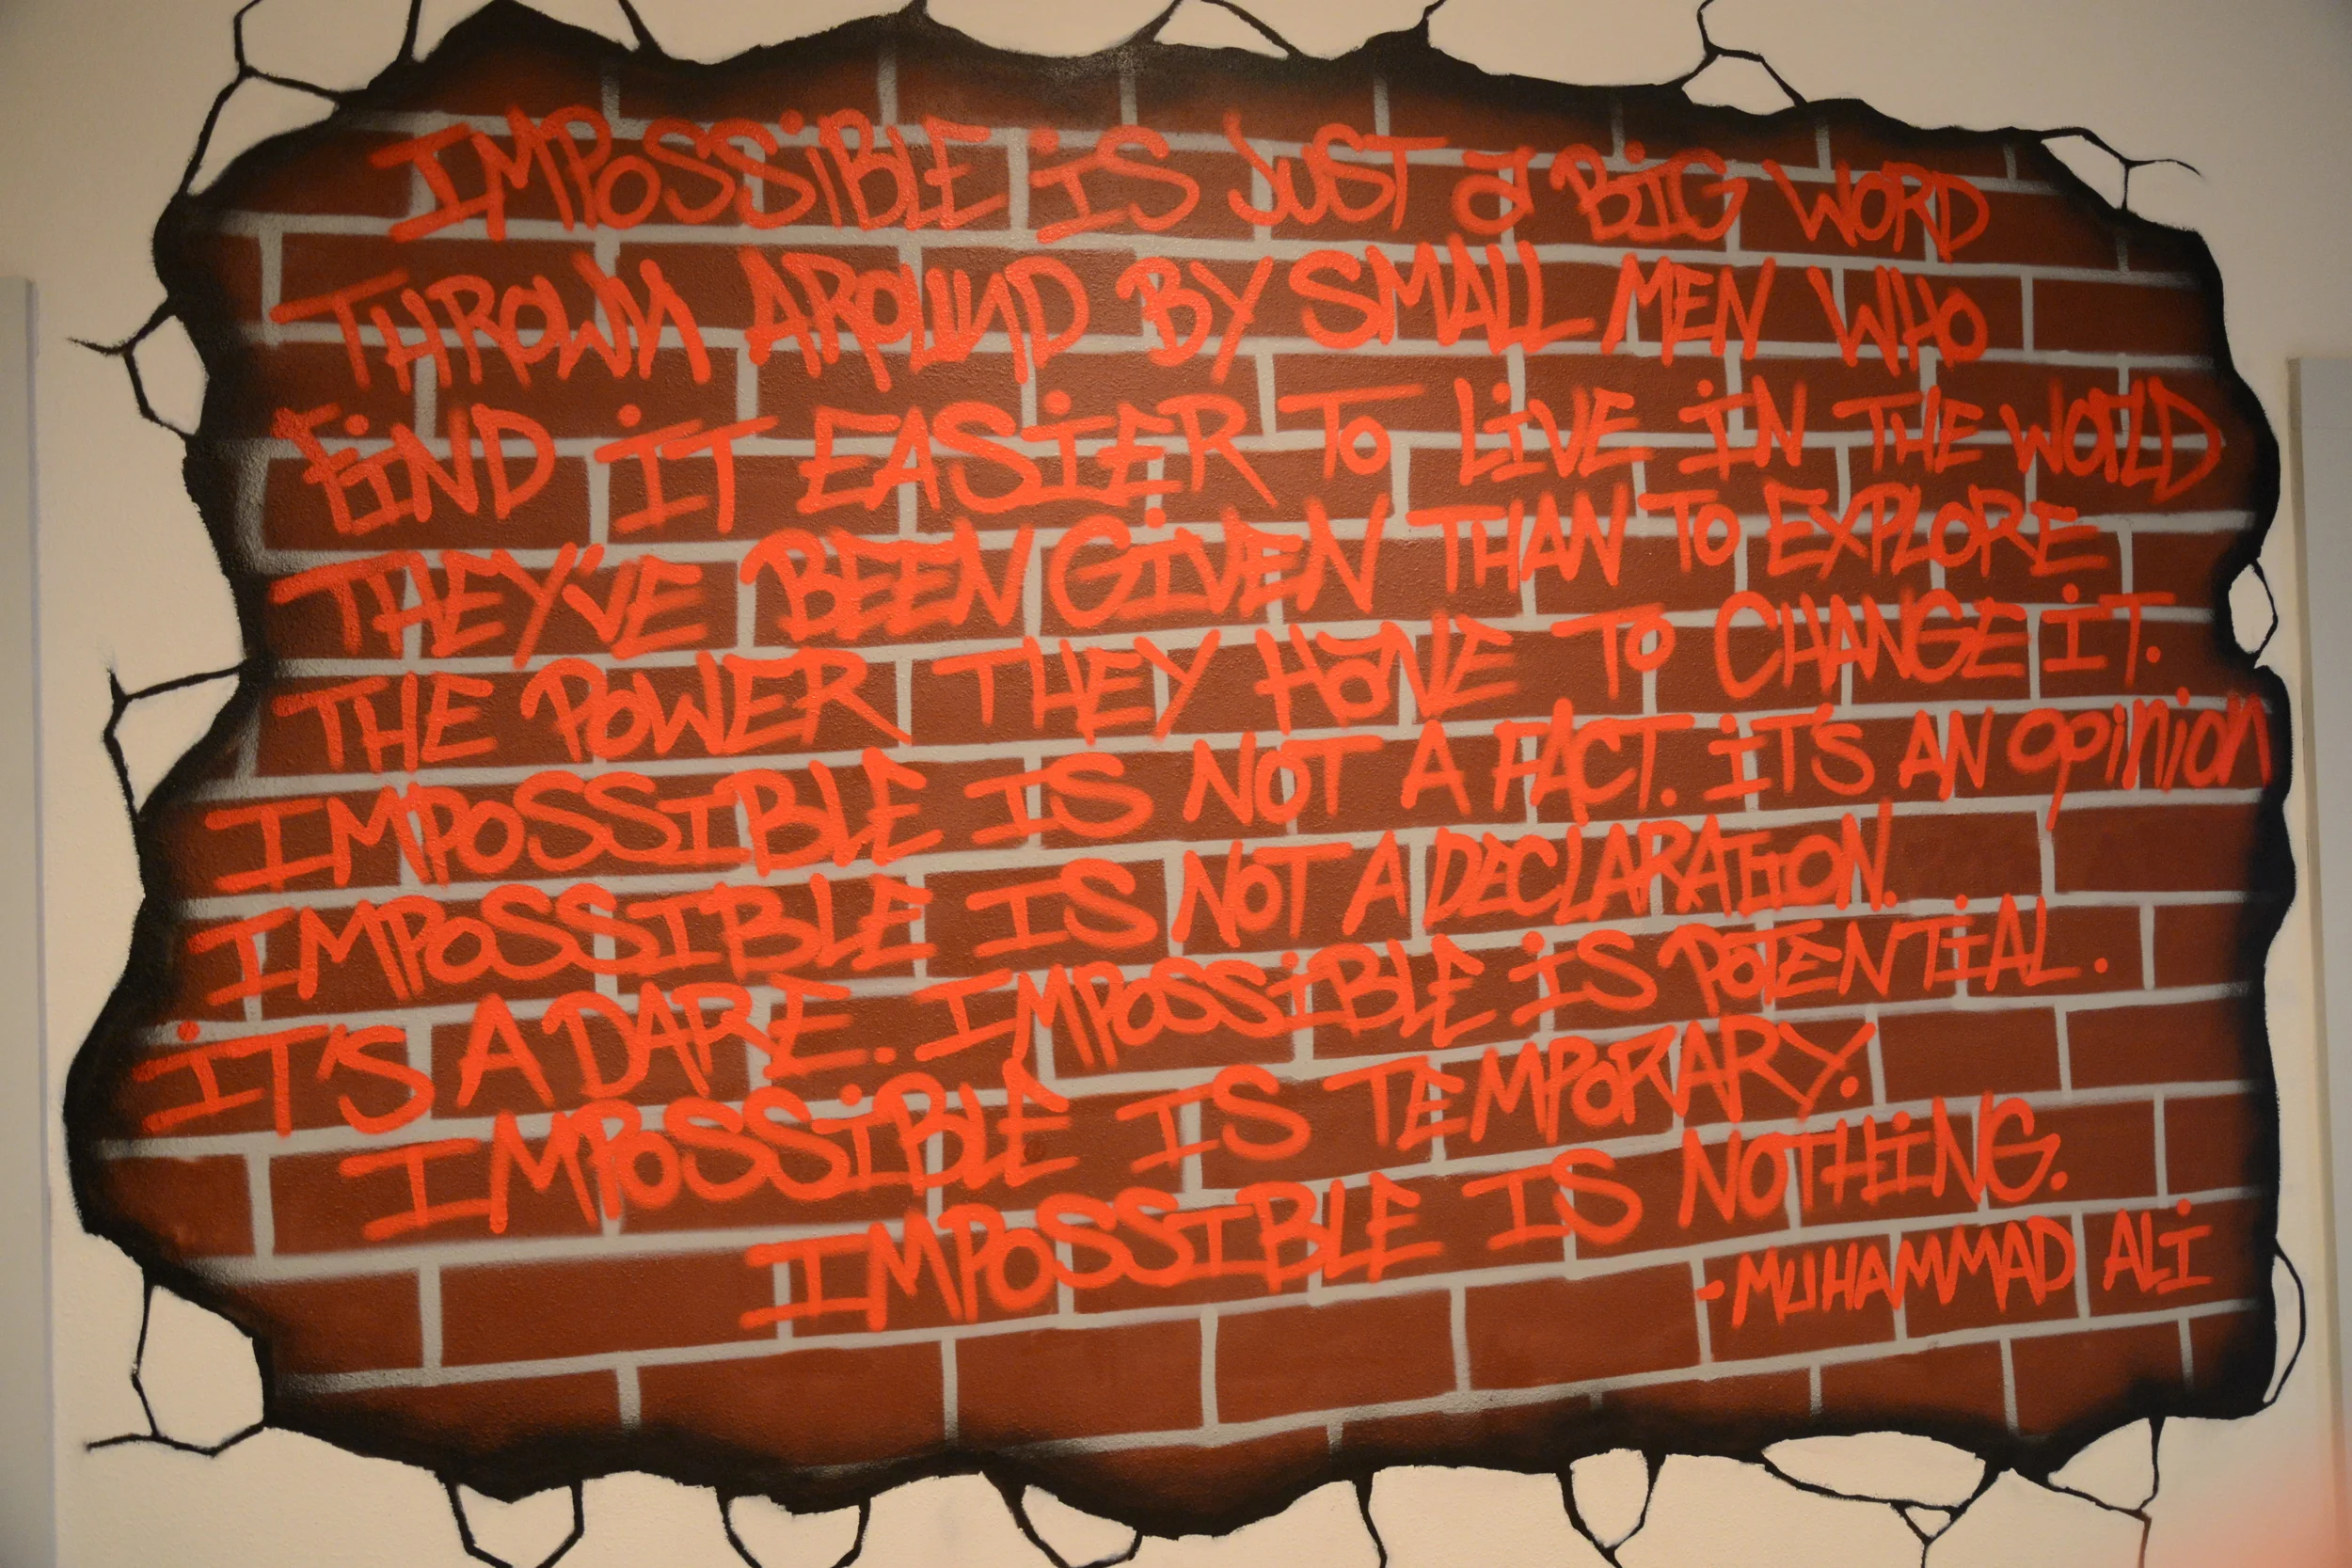 IMPOSSiBLE iS JUST a BiG WORD
THROWN AROUND BY SMALL MEN WHO
FiND iT EASiER TO LiVE iN THE WORLD
THEY'VE BEEN GiVEN THAN TO EXPLORE
THE POWER THEY HaVE TO CHANGE iT.
IMPOSSIBLE IS NOT A FACT. iT'S AN opinion
IMPOSSIBLE IS NOT A DECLARATiON.
iT'S A DARE. IMPOSSiBLE iS POTENTiAL.
IMPOSSiBLE IS TEMPORARY.
IMPOSSIBLE IS NOTHiNG.
-MUHAMMAD ALi